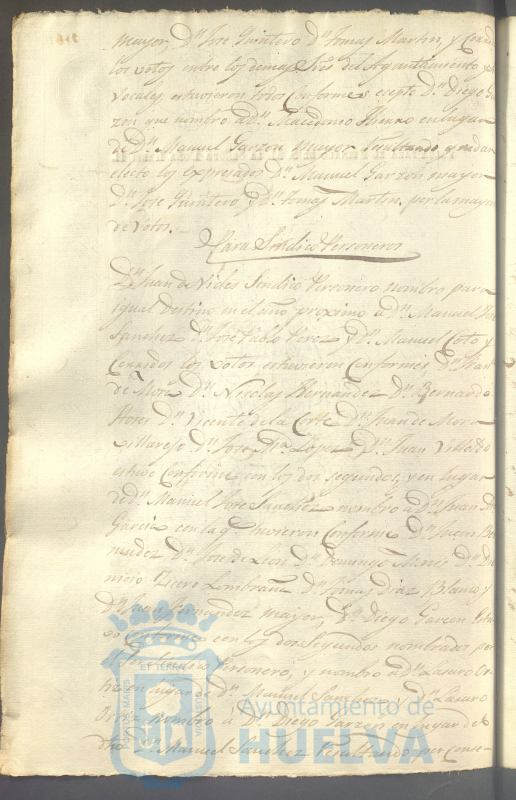 mayor, Dn. Jose Quintero Dn. Tomas Martin, y Corridos
los votos entre los demas Sres. del Ayuntamiento y
Vocales, estuvieron todos conformes exepto Dn. Diego Gar
zon que nombro a Dn. Macedonio Hierro en lugar
de Dn. Manuel Garzon mayor Resultando, quedar
electo los expresados Dn. Manuel Garzon mayor
Dn. Jose Quintero, y Dn. Tomas Martin, por la mayor
de Votos.
Para Sindico Personeros
Dn. Juan de Vides Sindico Personero nombro para
igual destino en el año proximo a Dn. Manuel Jose
Sanchez Dn. Jose Pablo Perez y Dn. Manuel Coto y
Corridos los votos estuvieron conformes Dn. Fran
de Mora Dn. Nicolas Hernandez Dn. Bernardo
Flores Dn. Vicente de la Corte Dn. Juan de Mora
Villarejo Dn. Jose Ma. Lopez Dn. Juan
estuvo conforme con los dos segundos, y en lugar
de Dn. Manuel Jose Sanchez nombro a Dn. Juan
Garcia en la q. tuvieron conforme Dn. Juan Ber
mudez Dn. Jose de Leon Dn. Domingo Dn. Dio
nicio Dn. Tomas Diaz Blanco y
Dn. Juan Fernandez mayor, Dn. Diego Garzon estu
vo conforme con los dos segundos nombrados por
el Sindico Personero, y nombro a Dn. Lazaro Or
tiz en lugar de Dn. Manuel Sanchez, y Dn. Lazaro
Ortiz nombro a Dn. Diego Garzon en lugar de
dho. Dn. Manuel Sanchez Resultando por conse-
Ayuntamiento de
HUELVA